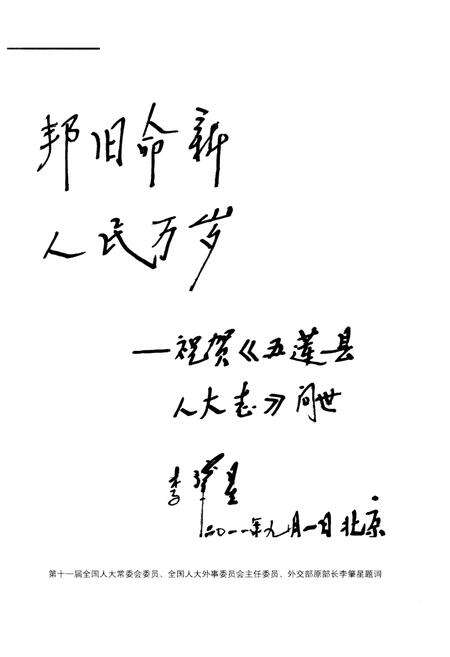 邦旧命新
人民万岁
—祝贺《五莲县
人大志》问世
李肇星
二〇一一年九月一日北京
第十一届全国人大常委会委员、全国人大外事委员会主任委员、外交部原部长李肇星题词